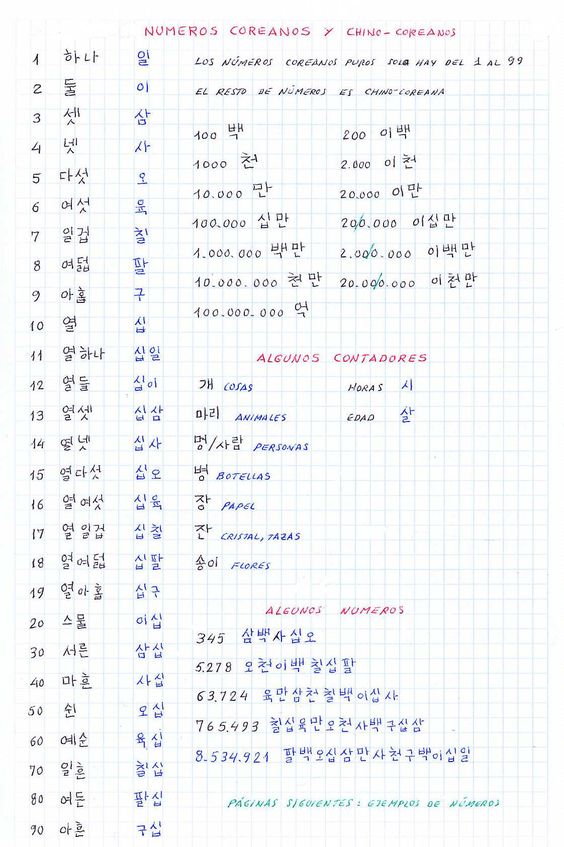 NUMEROS COREANOS Y CHINO-COREANOS
1 하나 일
2 둘 이
3 셋 삼
4 넷 사
5 다섯 오
6 여섯 육
7 일겁 칠
8 여덟 팔
9 아홉 구
10 열 십
11 열하나 십일
12 열들 십이
13 열셋 십삼
14 열넷 십사
15 열다섯 십오
16 열여섯 십육
17 열일겁 십칠
18 열여덟 십팔
19 열아홉 십구
20 스물 이십
30 서른 삼십
40 마흔 사십
50 쉰 오십
60 예순 육십
70 일흔 칠십
80 여든 팔십
90 아흔 구십
LOS NÚMEROS COREANOS PUROS SOLO HAY DEL 1 AL 99
EL RESTO DE NÚMEROS ES CHINO-COREANA
100 백 200 이백
1000 천 2.000 이천
10.000 만 20.000 이만
100.000 십만 200.000 이십만
1.000.000 백만 2.000.000 이백만
10.000.000 천만 20.000.000 이천만
100.000.000 억
ALGUNOS CONTADORES
개 COSAS HORAS 시
마리 ANIMALES EDAD 살
멍/사람 PERSONAS
병 BOTELLAS
장 PAPEL
잔 CRISTAL, TAZAS
송이 FLORES
ALGUNOS NUMEROS
345 삼백사십오
5.278 오천이백칠십팔
63.724 육만삼천칠백이십사
765.493 칠십육만오천사백구십삼
8.534.921 팔백오십삼만사천구백이십일
PÁGINAS SIGUIENTES: EJEMPLOS DE NÚMEROS